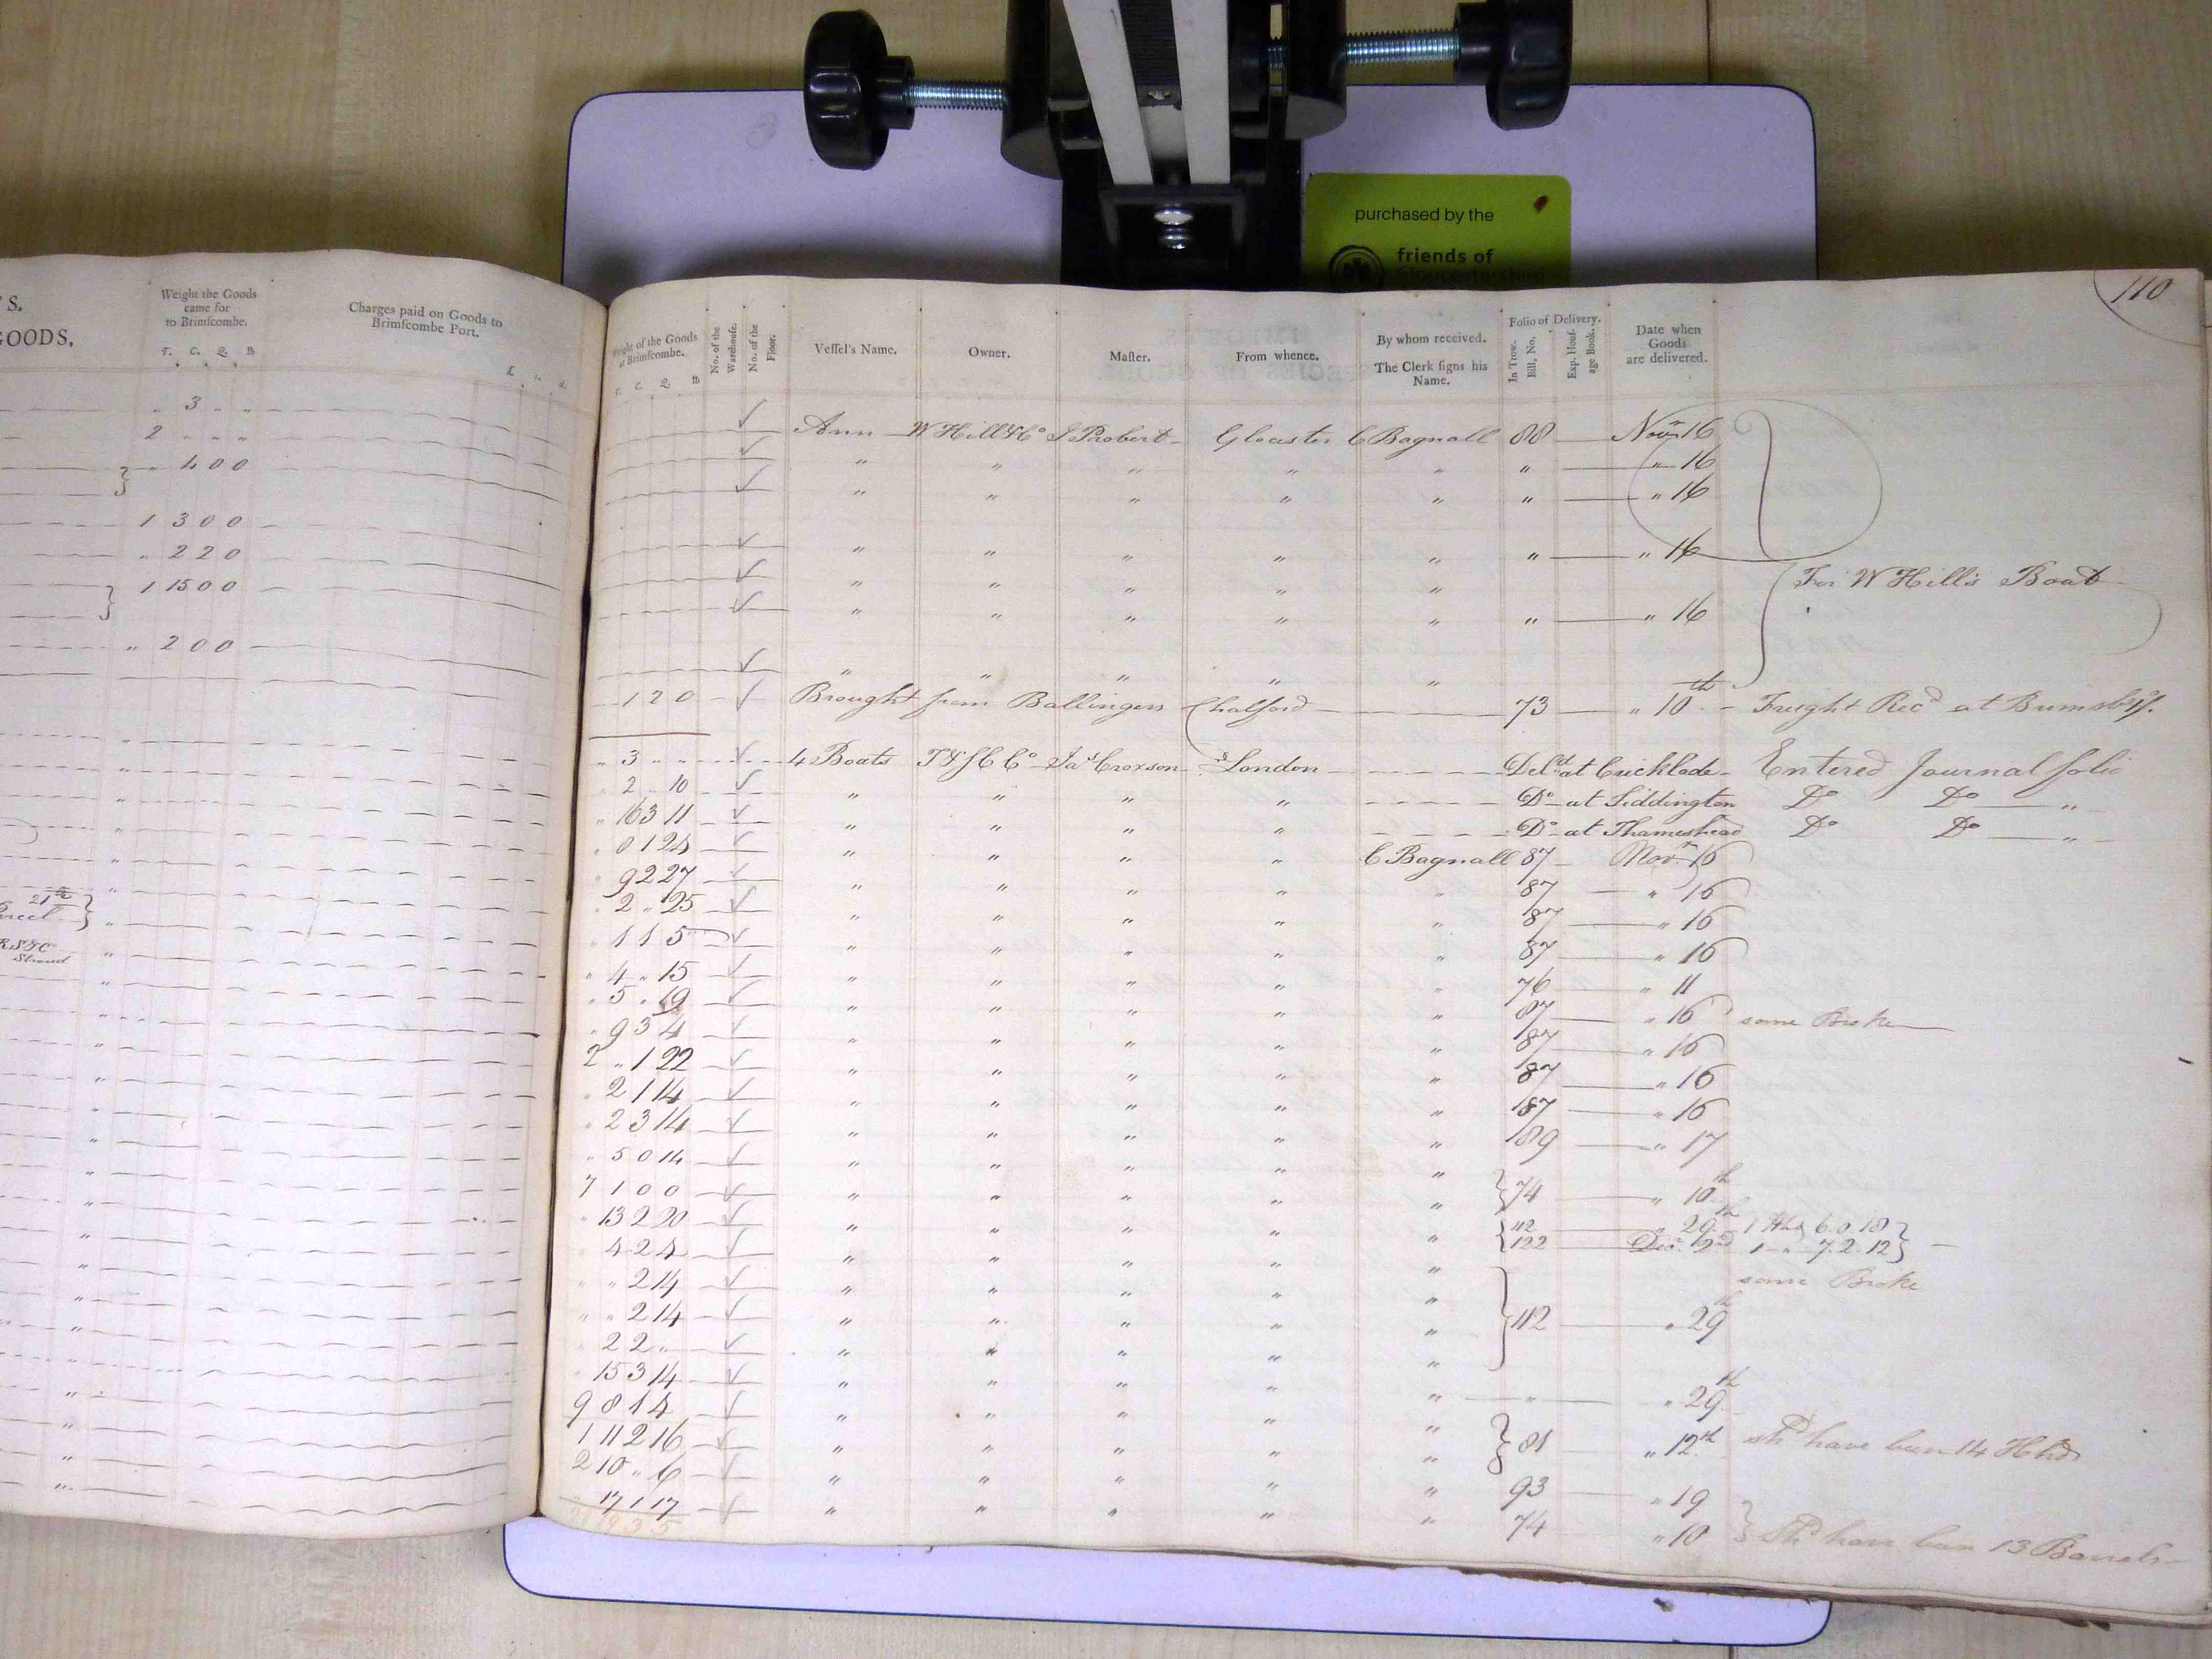 purchased by the
friends of
Gloucestershire
S.
GOODS.
Weight the Goods
came for
to Brimſcombe.
T. C. Q. lb
Charges paid on Goods to
Brimſcombe Port.
£ s. d.
" 3 " "
2 " " "
" 4 0 0
1 3 0 0
" 2 2 0
1 15 0 0
" 2 0 0
21st
Parcel
RS&Co
Stroud
110
Weight of the Goods
at Brimſcombe.
T. C. Q. lb
No. of the
Warehouse.
No. of the
Floor.
Veſſel's Name.
Owner.
Maſter.
From whence.
By whom received.
The Clerk ſigns his
Name.
Folio of Delivery.
In Trow.
Bill, No.
Exp. Houſ-
age Book.
Date when
Goods
are delivered.
✓ Ann W Hill & Co J Probert Glouster C Bagnall 88 Novr 16
✓ " " " " " " " 16
✓ " " " " " " " 16
✓ " " " " " " " 16
✓ " " " " "
✓ " " " " " " " 16
For W Hill's Boat
✓ " " " " "
1 2 0 ✓ Brought from Ballingers Chalford 73 " 10th Freight Recd at Bumsbys.
" 3 " " ✓ 4 Boats T&SC Co Jas Croxson London Deld at Cricklade Entered Journal folio
" 2 " 10 ✓ " " " " Do at Siddington Do Do "
" 16 3 11 ✓ " " " " Do at Thameshead Do Do "
" 8 1 24 ✓ " " " " C Bagnall 87 Novr 16
" 9 2 27 ✓ " " " " " 87 " 16
" 2 " 25 ✓ " " " " " 87 " 16
" 1 1 5 ✓ " " " " " 87 " 16
" 4 " 15 ✓ " " " " " 76 " 11
" 5 " 19 ✓ " " " " " 87 " 16 some Broke
" 9 3 4 ✓ " " " " " 87 " 16
2 " 1 22 ✓ " " " " " 87 " 16
" 2 1 14 ✓ " " " " " 87 " 16
" 2 3 14 ✓ " " " " " 89 " 17
" 5 0 14 ✓ " " " " "
7 1 0 0 ✓ " " " " " 74 " 10th
" 13 2 20 ✓ " " " " " 112 " 29th 1 Hhd 6.0.18
122 Decr 2nd 1 " 7.2.12
" 4 2 4 ✓ " " " " " some Broke
" " 2 14 ✓ " " " " "
" " 2 14 ✓ " " " " " 112 " 29th
" 2 2 " ✓ " " " " "
" 15 3 14 ✓ " " " " " " " 29th
9 8 1 4 ✓ " " " " "
1 11 2 16 ✓ " " " " " 81 " 12th shd have been 14 Hhds
2 10 " 6 ✓ " " " " " 93 " 19
" 17 1 17 ✓ " " " " " 74 " 10 Shd have been 13 Barrels